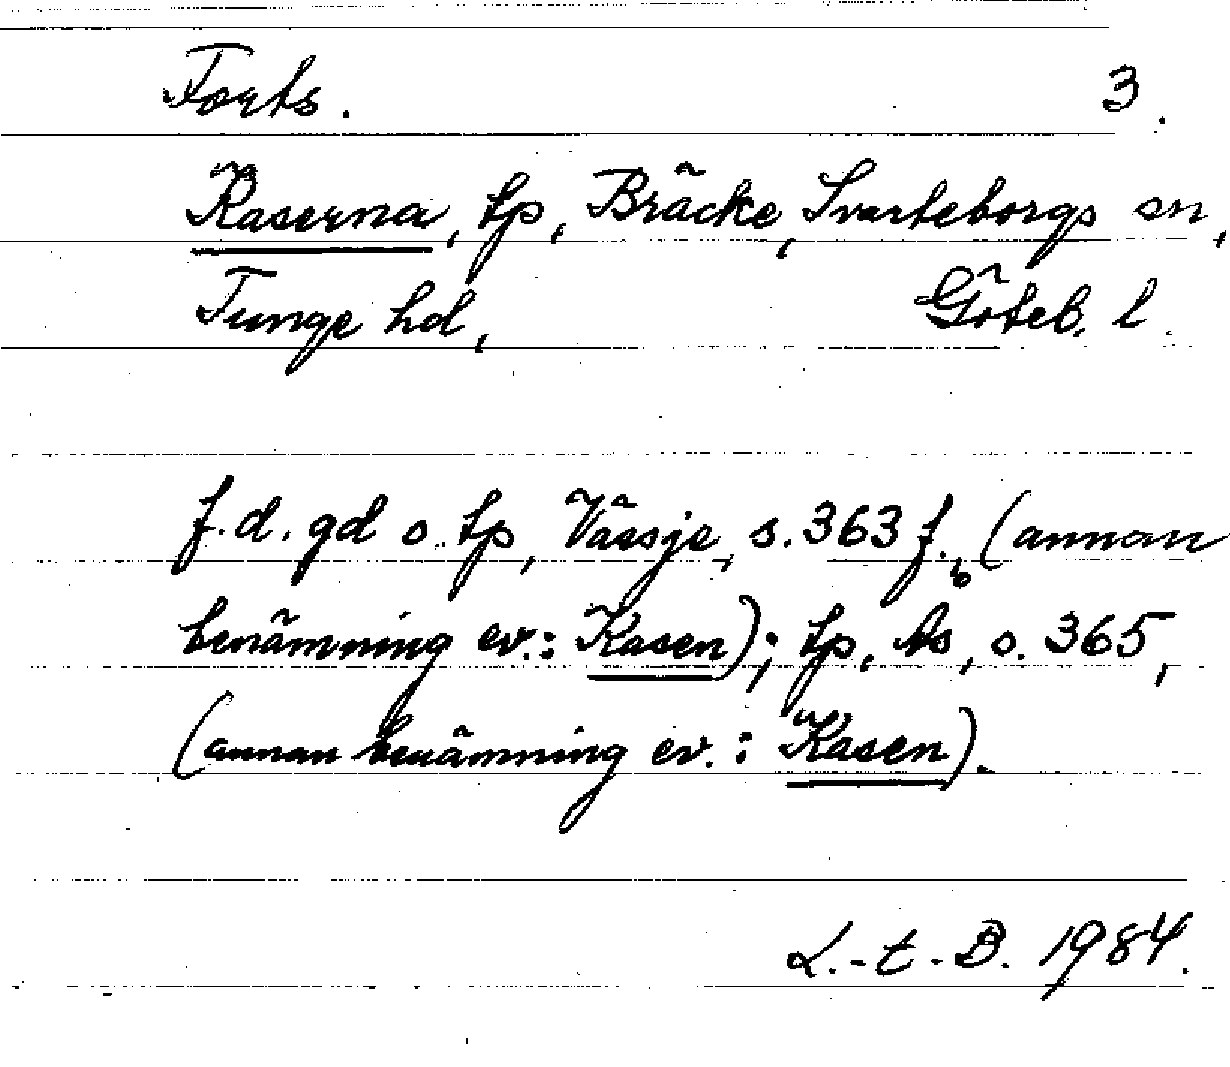 Forts. 3.
Kaserna, tp, Bräcke, Svarteborgs sn,
Tunge hd, Göteb. l.
f.d. gd o. tp, Vässje, s. 363 f., (annan
benämning ev.: Kasen); tp, Ås, s. 365,
(annan benämning ev.: Kasen).
L.-t.-B. 1984.